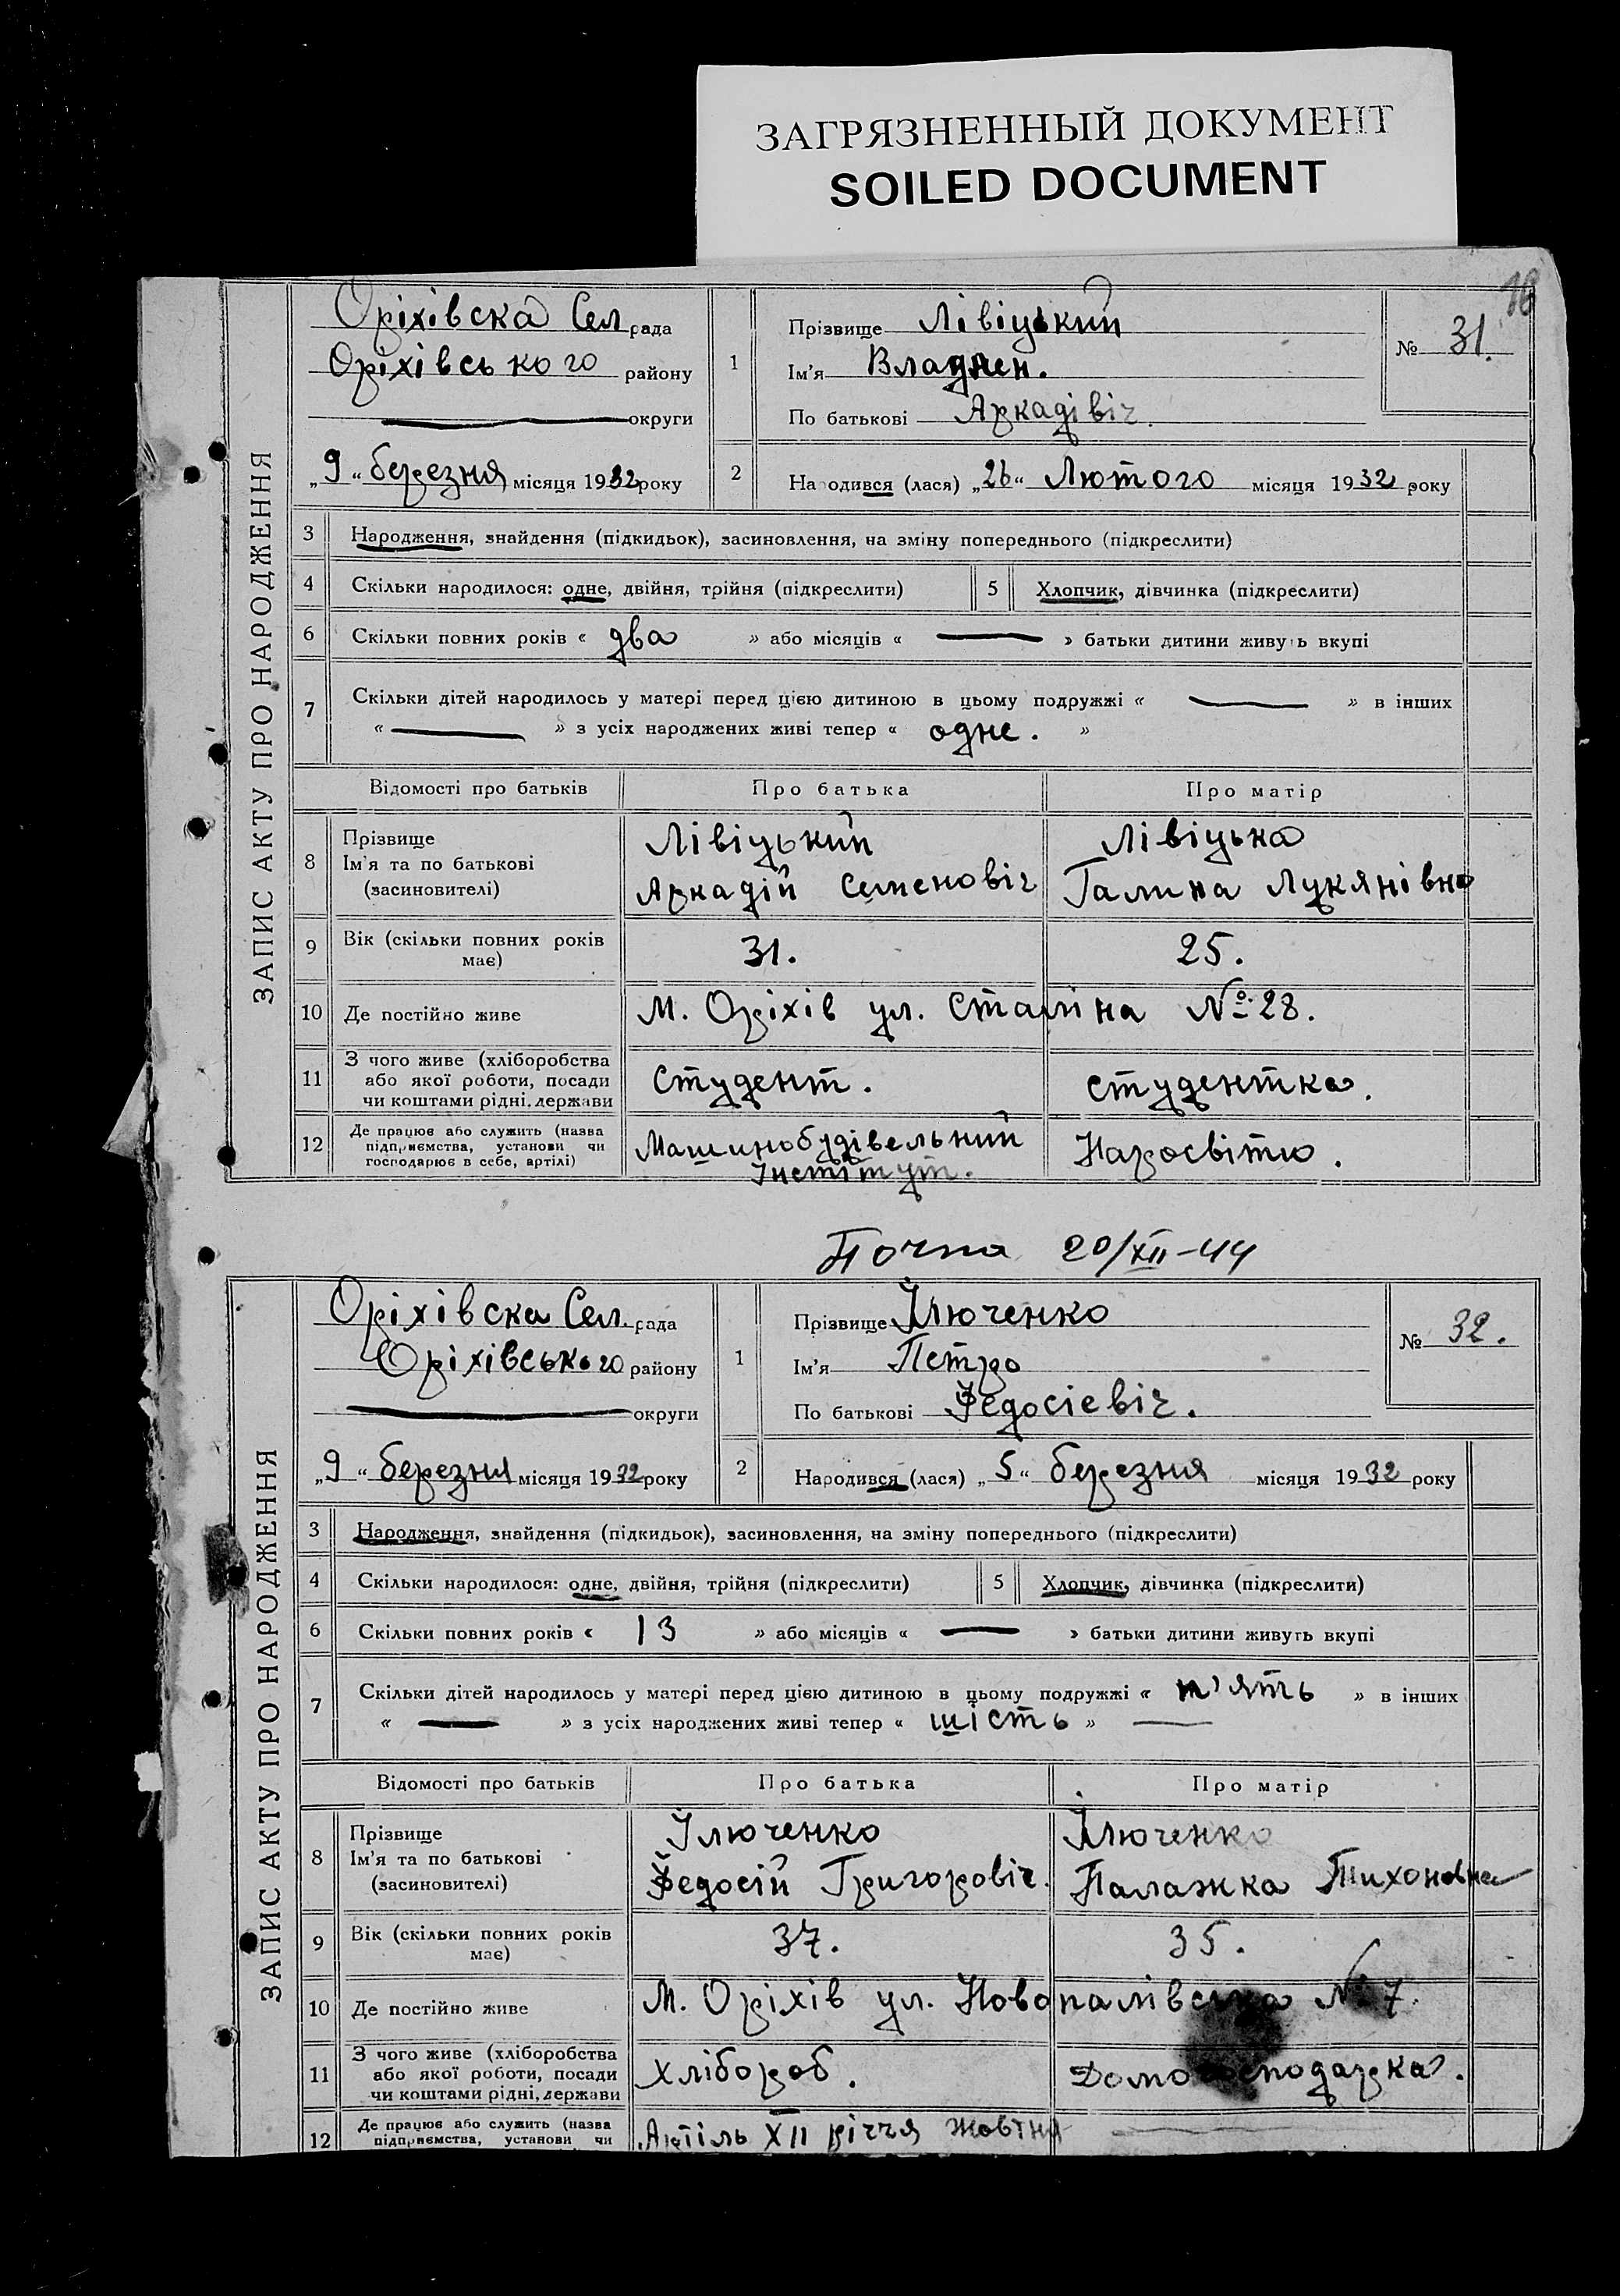 ЗАГРЯЗНЕННЫЙ ДОКУМЕНТ
SOILED DOCUMENT
ЗАПИС АКТУ ПРО НАРОДЖЕННЯ
Оріхівска Сел рада
Оріхівського району
округи
„9“ березня місяця 1932 року
1
Прізвище Лівіцький
Ім'я Владлен.
По батькові Аркадівіч.
№ 31.
2 Народився (лася) „26“ Лютого місяця 1932 року
3 Народження, знайдення (підкидьок), засиновлення, на зміну попереднього (підкреслити)
4 Скільки народилося: одне, двійня, трійня (підкреслити) 5 Хлопчик, дівчинка (підкреслити)
6 Скільки повних років « два » або місяців « — » батьки дитини живуть вкупі
7 Скільки дітей народилось у матері перед цією дитиною в цьому подружжі « — » в інших
« — » з усіх народжених живі тепер « одне. »
Відомості про батьків Про батька Про матір
8 Прізвище
Ім'я та по батькові
(засиновителі)
Лівіцький
Аркадій Семеновіч
Лівіцька
Галина Лукянівна
9 Вік (скільки повних років
має)
31. 25.
10 Де постійно живе М. Оріхів ул. Сталіна № 28.
11 З чого живе (хліборобства
або якої роботи, посади
чи коштами рідні, держави
Студент. студентка.
12 Де працює або служить (назва
підприємства, установи чи
господарює в себе, артілі)
Машинобудівельний
Інстітут.
Наросвітю.
20/XII-44
ЗАПИС АКТУ ПРО НАРОДЖЕННЯ
Оріхівска Сел. рада
Оріхівського району
округи
„9“ березня місяця 1932 року
1
Прізвище Ілюченко
Ім'я Петро
По батькові Федосієвіч.
№ 32.
2 Народився (лася) „5“ березня місяця 1932 року
3 Народження, знайдення (підкидьок), засиновлення, на зміну попереднього (підкреслити)
4 Скільки народилося: одне, двійня, трійня (підкреслити) 5 Хлопчик, дівчинка (підкреслити)
6 Скільки повних років « 13 » або місяців « — » батьки дитини живуть вкупі
7 Скільки дітей народилось у матері перед цією дитиною в цьому подружжі « п'ять » в інших
« — » з усіх народжених живі тепер « шість » —
Відомості про батьків Про батька Про матір
8 Прізвище
Ім'я та по батькові
(засиновителі)
Ілюченко
Федосій Григоровіч.
Ілюченко
Палажка Тихоновна
9 Вік (скільки повних років
має)
37. 35.
10 Де постійно живе М. Оріхів ул. Новопалівська № 7.
11 З чого живе (хліборобства
або якої роботи, посади
чи коштами рідні, держави
Хлібороб. Домогосподарка.
12 Де працює або служить (назва
підприємства, установи чи
Артіль XII річчя Жовтня